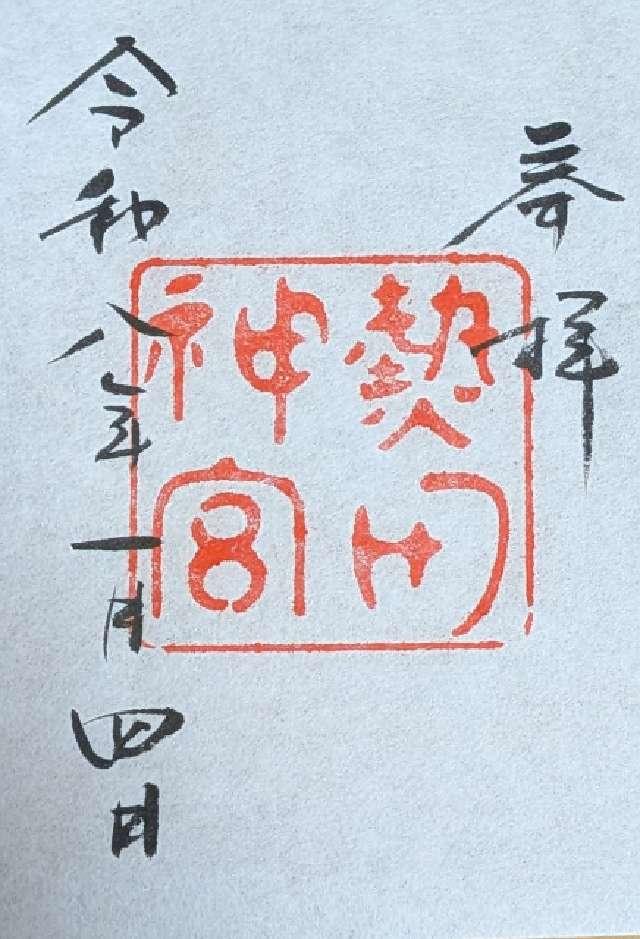 奉拝
熱田
神宮
令和八年一月四日